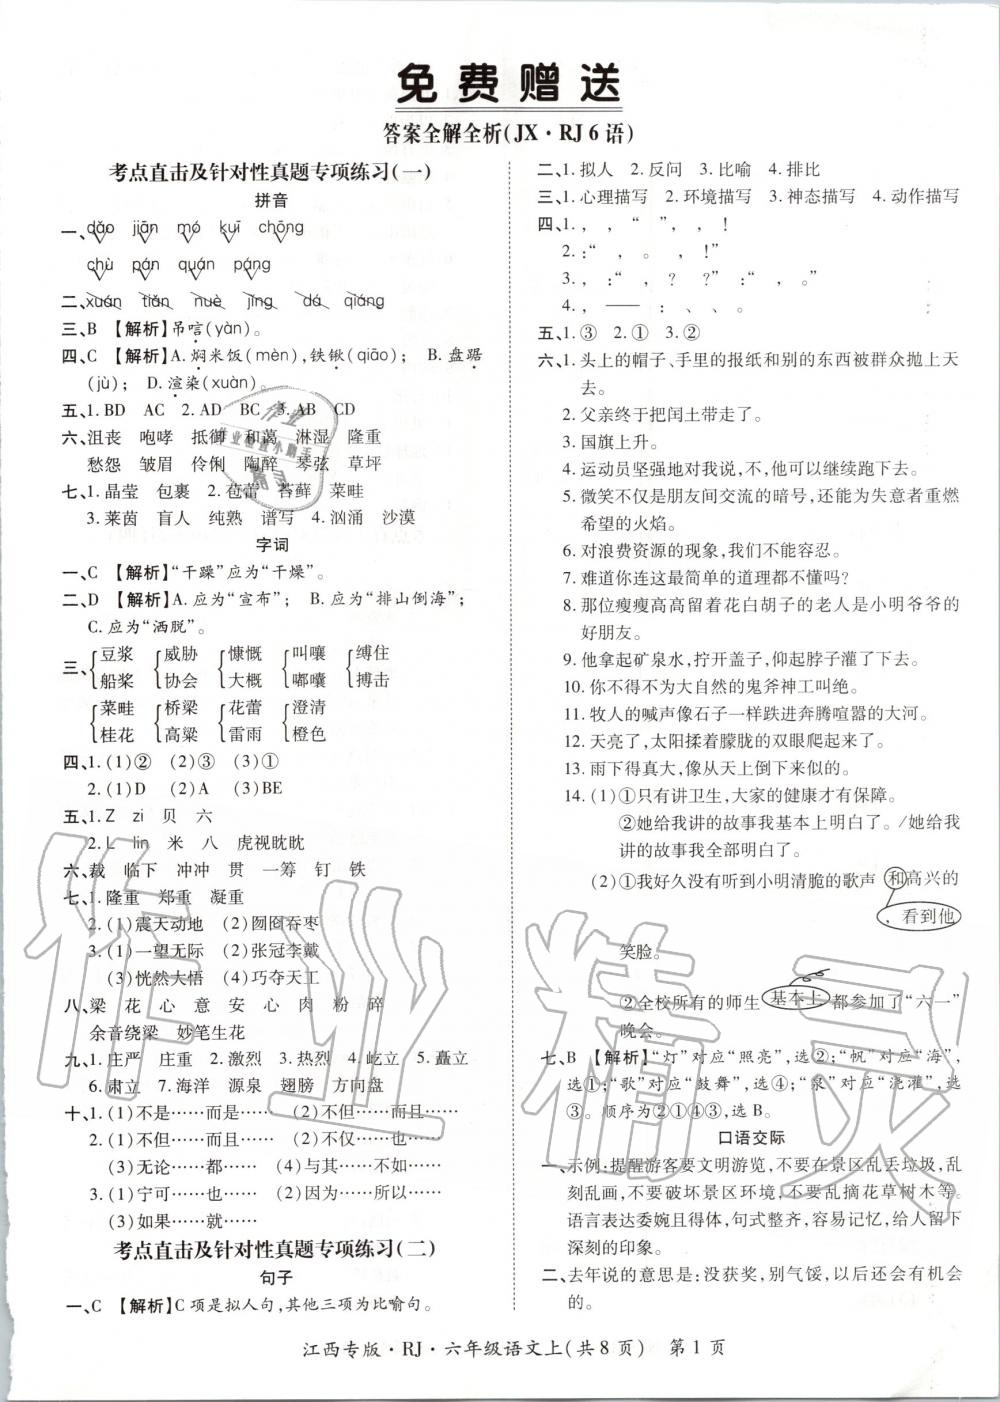 免费赠送
答案全解全析(JX·RJ6语)
考点直击及针对性真题专项练习(一)
拼音
一、dǎo jiān mó kuī chōng
chù pán quán páng
二、xuán tiǎn nuè jīng dá qiáng
三、B 【解析】吊唁(yàn)。
四、C 【解析】A.焖米饭(mèn),铁锹(qiāo); B.盘踞
(jù); D.渲染(xuàn)。
五、1.BD AC 2.AD BC 3.AB CD
六、沮丧 咆哮 抵御 和蔼 淋湿 隆重
愁怨 皱眉 伶俐 陶醉 琴弦 草坪
七、1.晶莹 包裹 2.苞蕾 苔藓 菜畦
3.莱茵 盲人 纯熟 谱写 4.汹涌 沙漠
字词
一、C 【解析】“干躁”应为“干燥”。
二、D 【解析】A.应为“宣布”; B.应为“排山倒海”;
C.应为“洒脱”。
三、豆浆 威胁 慷慨 叫嚷 缚住
船桨 协会 大概 嘟囔 搏击
菜畦 桥梁 花蕾 澄清
桂花 高粱 雷雨 橙色
四、1.(1)② (2)③ (3)①
2.(1)D (2)A (3)BE
五、1.Z zi 贝 六
2.L lin 米 八 虎视眈眈
六、裁 临下 冲冲 贯 一筹 钉 铁
七、1.隆重 郑重 凝重
2.(1)震天动地 (2)囫囵吞枣
3.(1)一望无际 (2)张冠李戴
(3)恍然大悟 (4)巧夺天工
八、梁 花 心 意 安 心 肉 粉 碎
余音绕梁 妙笔生花
九、1.庄严 庄重 2.激烈 3.热烈 4.屹立 5.矗立
6.肃立 7.海洋 源泉 翅膀 方向盘
十、1.(1)不是……而是…… (2)不但……而且……
2.(1)不但……而且…… (2)不仅……也……
(3)无论……都…… (4)与其……不如……
3.(1)宁可……也…… (2)因为……所以……
(3)如果……就……
考点直击及针对性真题专项练习(二)
句子
一、C 【解析】C项是拟人句,其他三项为比喻句。
二、1.拟人 2.反问 3.比喻 4.排比
三、1.心理描写 2.环境描写 3.神态描写 4.动作描写
四、1. , , “ ” , , !
2. :“ , 。 , !”
3. , :“ , ? ?” : , 。
4. , —— : 、 、 。
五、1.③ 2.① 3.②
六、1.头上的帽子、手里的报纸和别的东西被群众抛上天
去。
2.父亲终于把闰土带走了。
3.国旗上升。
4.运动员坚强地对我说,不,他可以继续跑下去。
5.微笑不仅是朋友间交流的暗号,还能为失意者重燃
希望的火焰。
6.对浪费资源的现象,我们不能容忍。
7.难道你连这最简单的道理都不懂吗?
8.那位瘦瘦高高留着花白胡子的老人是小明爷爷的
好朋友。
9.他拿起矿泉水,拧开盖子,仰起脖子灌了下去。
10.你不得不为大自然的鬼斧神工叫绝。
11.牧人的喊声像石子一样跌进奔腾喧嚣的大河。
12.天亮了,太阳揉着朦胧的双眼爬起来了。
13.雨下得真大,像从天上倒下来似的。
14.(1)①只有讲卫生,大家的健康才有保障。
②她给我讲的故事我基本上明白了。/她给我
讲的故事我全部明白了。
(2)①我好久没有听到小明清脆的歌声和高兴的
,看到他
笑脸。
②全校所有的师生基本上都参加了“六一”
晚会。
七、B 【解析】“灯”对应“照亮”,选②;“帆”对应“海”,
选①;“歌”对应“鼓舞”,选④;“泉”对应“浇灌”,选
③。顺序为②①④③,选B。
口语交际
一、示例:提醒游客要文明游览,不要在景区乱丢垃圾,乱
刻乱画,不要破坏景区环境,不要乱摘花草树木等。
语言表达委婉且得体,句式整齐,容易记忆,给人留下
深刻的印象。
二、去年说的意思是:没获奖,别气馁,以后还会有机会
的。
江西专版·RJ·六年级语文上(共8页) 第1页
作业精灵